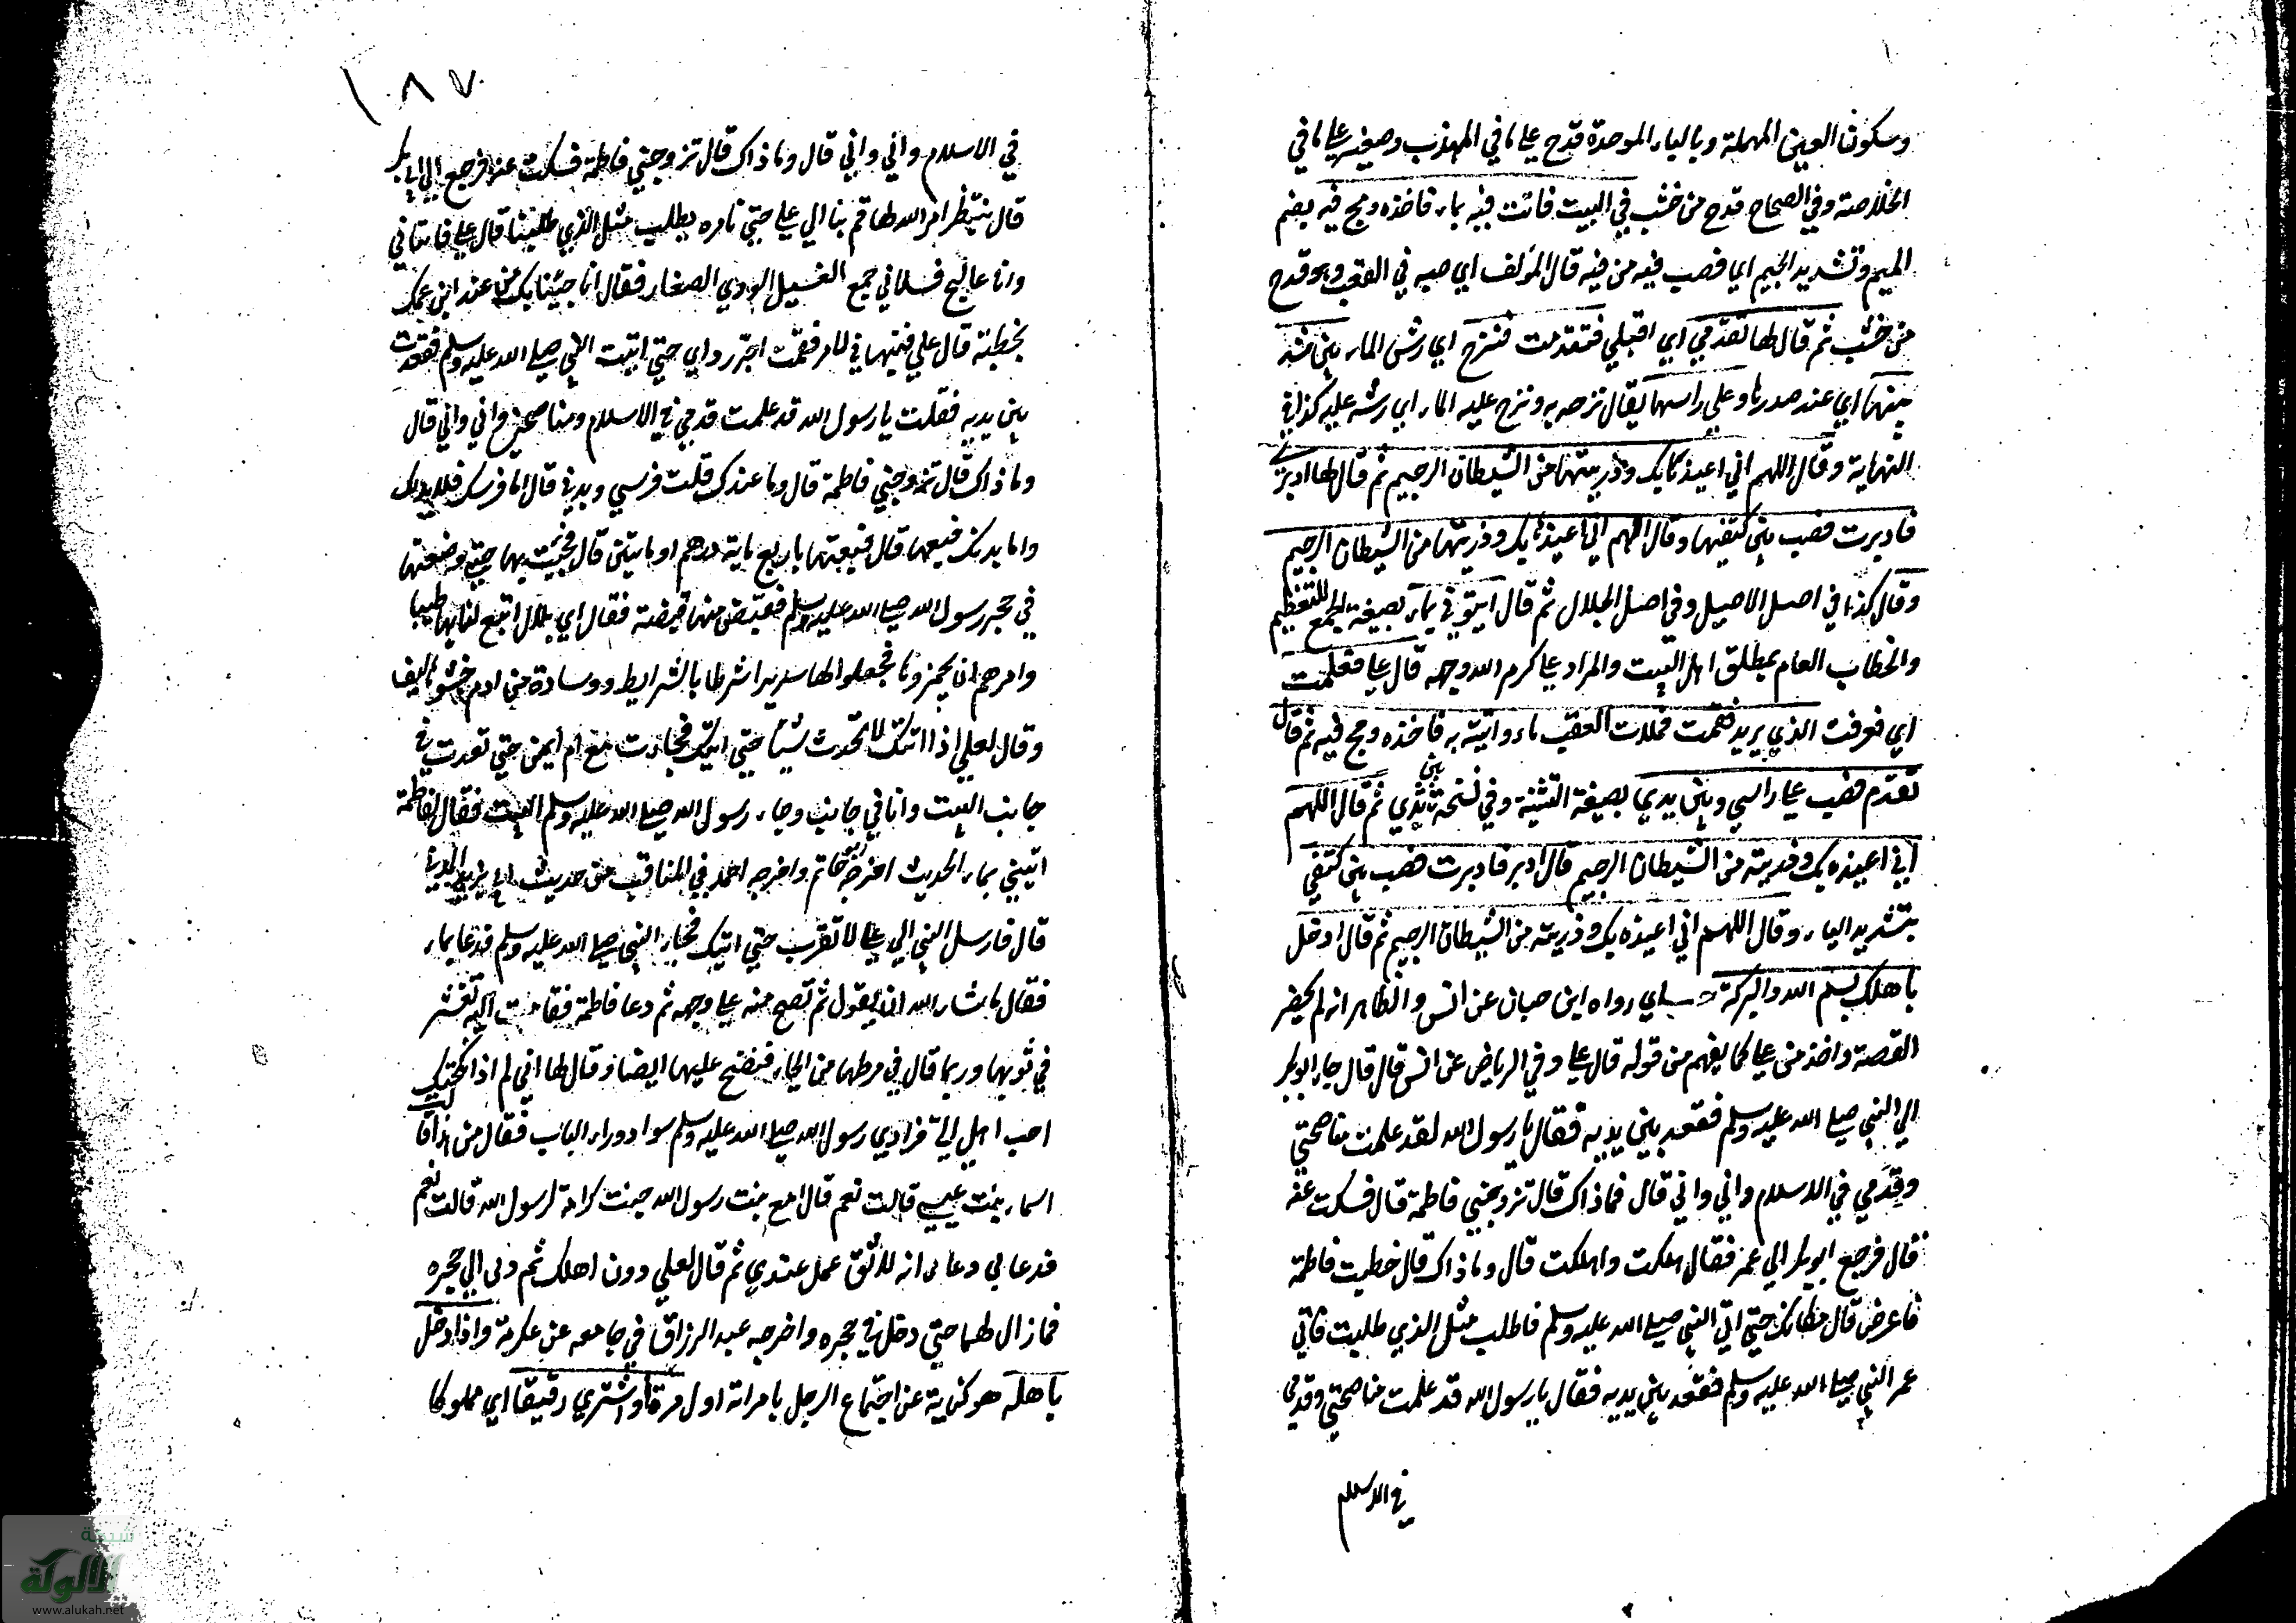 وسكون العين المهملة وبالباء الموحدة قدح على ما في المهذب وصغير على ما في
الخلاصة وفي الصحاح قدح من خشب في البيت فاتت فيه بماء فاخذه ومج فيه بضم
الميم وتشديد الجيم اي فصب فيه من فيه قال المؤلف اي صبه في القعب وهو قدح
من خشب ثم قال لها تقدمي اي اقبلي فتقدمت فنزح اي رش الماء بين
ثدييها اي عند صدرها وعلى راسها يقال نزحه به ونزح عليه الماء اي رشه عليه كذا في
النهاية وقال اللهم اني اعيذها بك وذريتها من الشيطان الرجيم ثم قال لها ادبري
فادبرت فصب بين كتفيها وقال اللهم اني اعيذها بك وذريتها من الشيطان الرجيم
وقال كذا في اصل الاصيل وفي اصل الجلال ثم قال ايتوني بماء بصيغة الجمع للتعظيم
والخطاب العام بمطلق اهل البيت والمراد علي كرم الله وجهه قال علي فعلمت
اي فعرفت الذي يريد فقمت فملات القعب ماء واتيته به فاخذه ومج فيه ثم قال
تقدم فصب على راسي وبين يدي بصيغة التثنية وفي نسخة بين ثديي ثم قال اللهم
اني اعيذه بك وذريته من الشيطان الرجيم قال ادبر فادبرت فصب بين كتفي
بتشديد الياء وقال اللهم اني اعيذه بك وذريته من الشيطان الرجيم ثم قال ادخل
باهلك بسم الله والبركة اي رواه ابن حبان عن انس والظاهر انه لم يحضر
القصة واخذ من علي كما يفهم من قوله قال علي وفي الرياض عن انس قال قال جاء ابو بكر
الى النبي صلى الله عليه وسلم فقعد بين يديه فقال يا رسول الله لقد علمت مناصحتي
وقدمي في الاسلام واني واني قال فما ذاك قال تزوجني فاطمة قال فسكت عنه
قال فرجع ابو بكر الي عمر فقال هلكت واهلكت قال وما ذاك قال خطبت فاطمة
فاعرض قال مكانك حتى اتي النبي صلى الله عليه وسلم فاطلب مثل الذي طلبت فاتي
عمر النبي صلى الله عليه وسلم فقعد بين يديه فقال يا رسول الله قد علمت مناصحتي وقدمي
في الاسلام
١٨٧
في الاسلام واني واني قال وما ذاك قال تزوجني فاطمة فسكت عنه فرجع الي ابي بكر
قال ينتظر امر الله بها قم بنا الي علي حتى نامره يطلب مثل الذي طلبنا قال علي فاتياني
وانا عالج فسلاني جمع الفسيل الودي الصغار فقال انا جئناك من عند ابن عمك
بخطبة قال علي فنبهاني لامر فقمت اجر رداي حتى اتيت النبي صلى الله عليه وسلم فقعدت
بين يديه فقلت يا رسول الله قد علمت قدمي في الاسلام ومناصحتي واني واني قال
وما ذاك قال تزوجني فاطمة قال وما عندك قلت فرسي وبدني قال اما فرسك فلا بد لك
واما بدنك فبعها قال فبعتها باربع ماية درهم او مايتين قال فجئت بها حتى وضعتها
في حجر رسول الله صلى الله عليه وسلم فقبض منها قبضة فقال اي بلال ابتع لنا بها طيبا
وامرهم ان يجهزوها فجعلوا لها سريرا شرطا بالشرايط ووسادة من ادم حشوها ليف
وقال لعلي اذا اتتك لا تحدث شيئا حتى اتيك فجاءت مع ام ايمن حتى قعدت في
جانب البيت وانا في جانب وجاء رسول الله صلى الله عليه وسلم البيت فقال لفاطمة
ائتيني بماء الحديث اخرجه حاتم واخرجه احمد في المناقب من حديث ابي يزيد المديني
قال فارسل النبي الي علي لا تقرب حتى اتيك فجاء النبي صلى الله عليه وسلم فدعا بماء
فقال ما شاء الله ان يقول ثم نضح منه على وجهه ثم دعا فاطمة فقامت اليه تعثر
في ثوبها وربما قال في مرطها من الحياء فنضح عليها ايضا وقال لها اني لم اذا نكحتك
احب اهلي الي فراي رسول الله صلى الله عليه وسلم سوادا وراء الباب فقال من هذا قالت
اسماء بنت عميس قالت نعم قال امع بنت رسول الله جيت كرامة لرسول الله قالت نعم
فدعا لي دعاء انه لاوثق عمل عندي ثم قال لعلي دون اهلك ثم ولى الي حجره
فما زال لهما حتى دخل في حجره واخرجه عبد الرزاق في جامعه عن عكرمة واذا دخل
باهله هو كناية عن اجتماع الرجل بامراته اول مرة او اشترى رقيقا اي مملوكا
شبكة
الألوكة
www.alukah.net